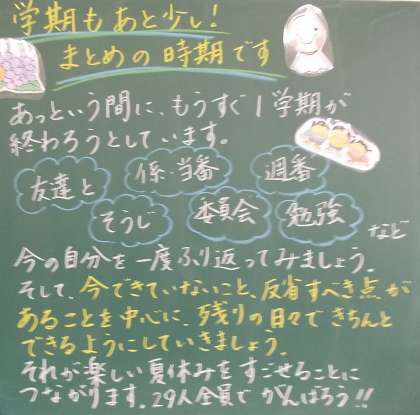 学期もあと少し！
まとめの時期です
あっという間に、もうすぐ1学期が
終わろうとしています。
友達と 係・当番 週番
そうじ 委員会 勉強 など
今の自分を一度ふり返ってみましょう。
そして、今できていないこと、反省すべき点が
あることを中心に、残りの日々できちんと
できるようにしていきましょう。
それが楽しい夏休みをすごせることに
つながります。29人全員でがんばろう!!